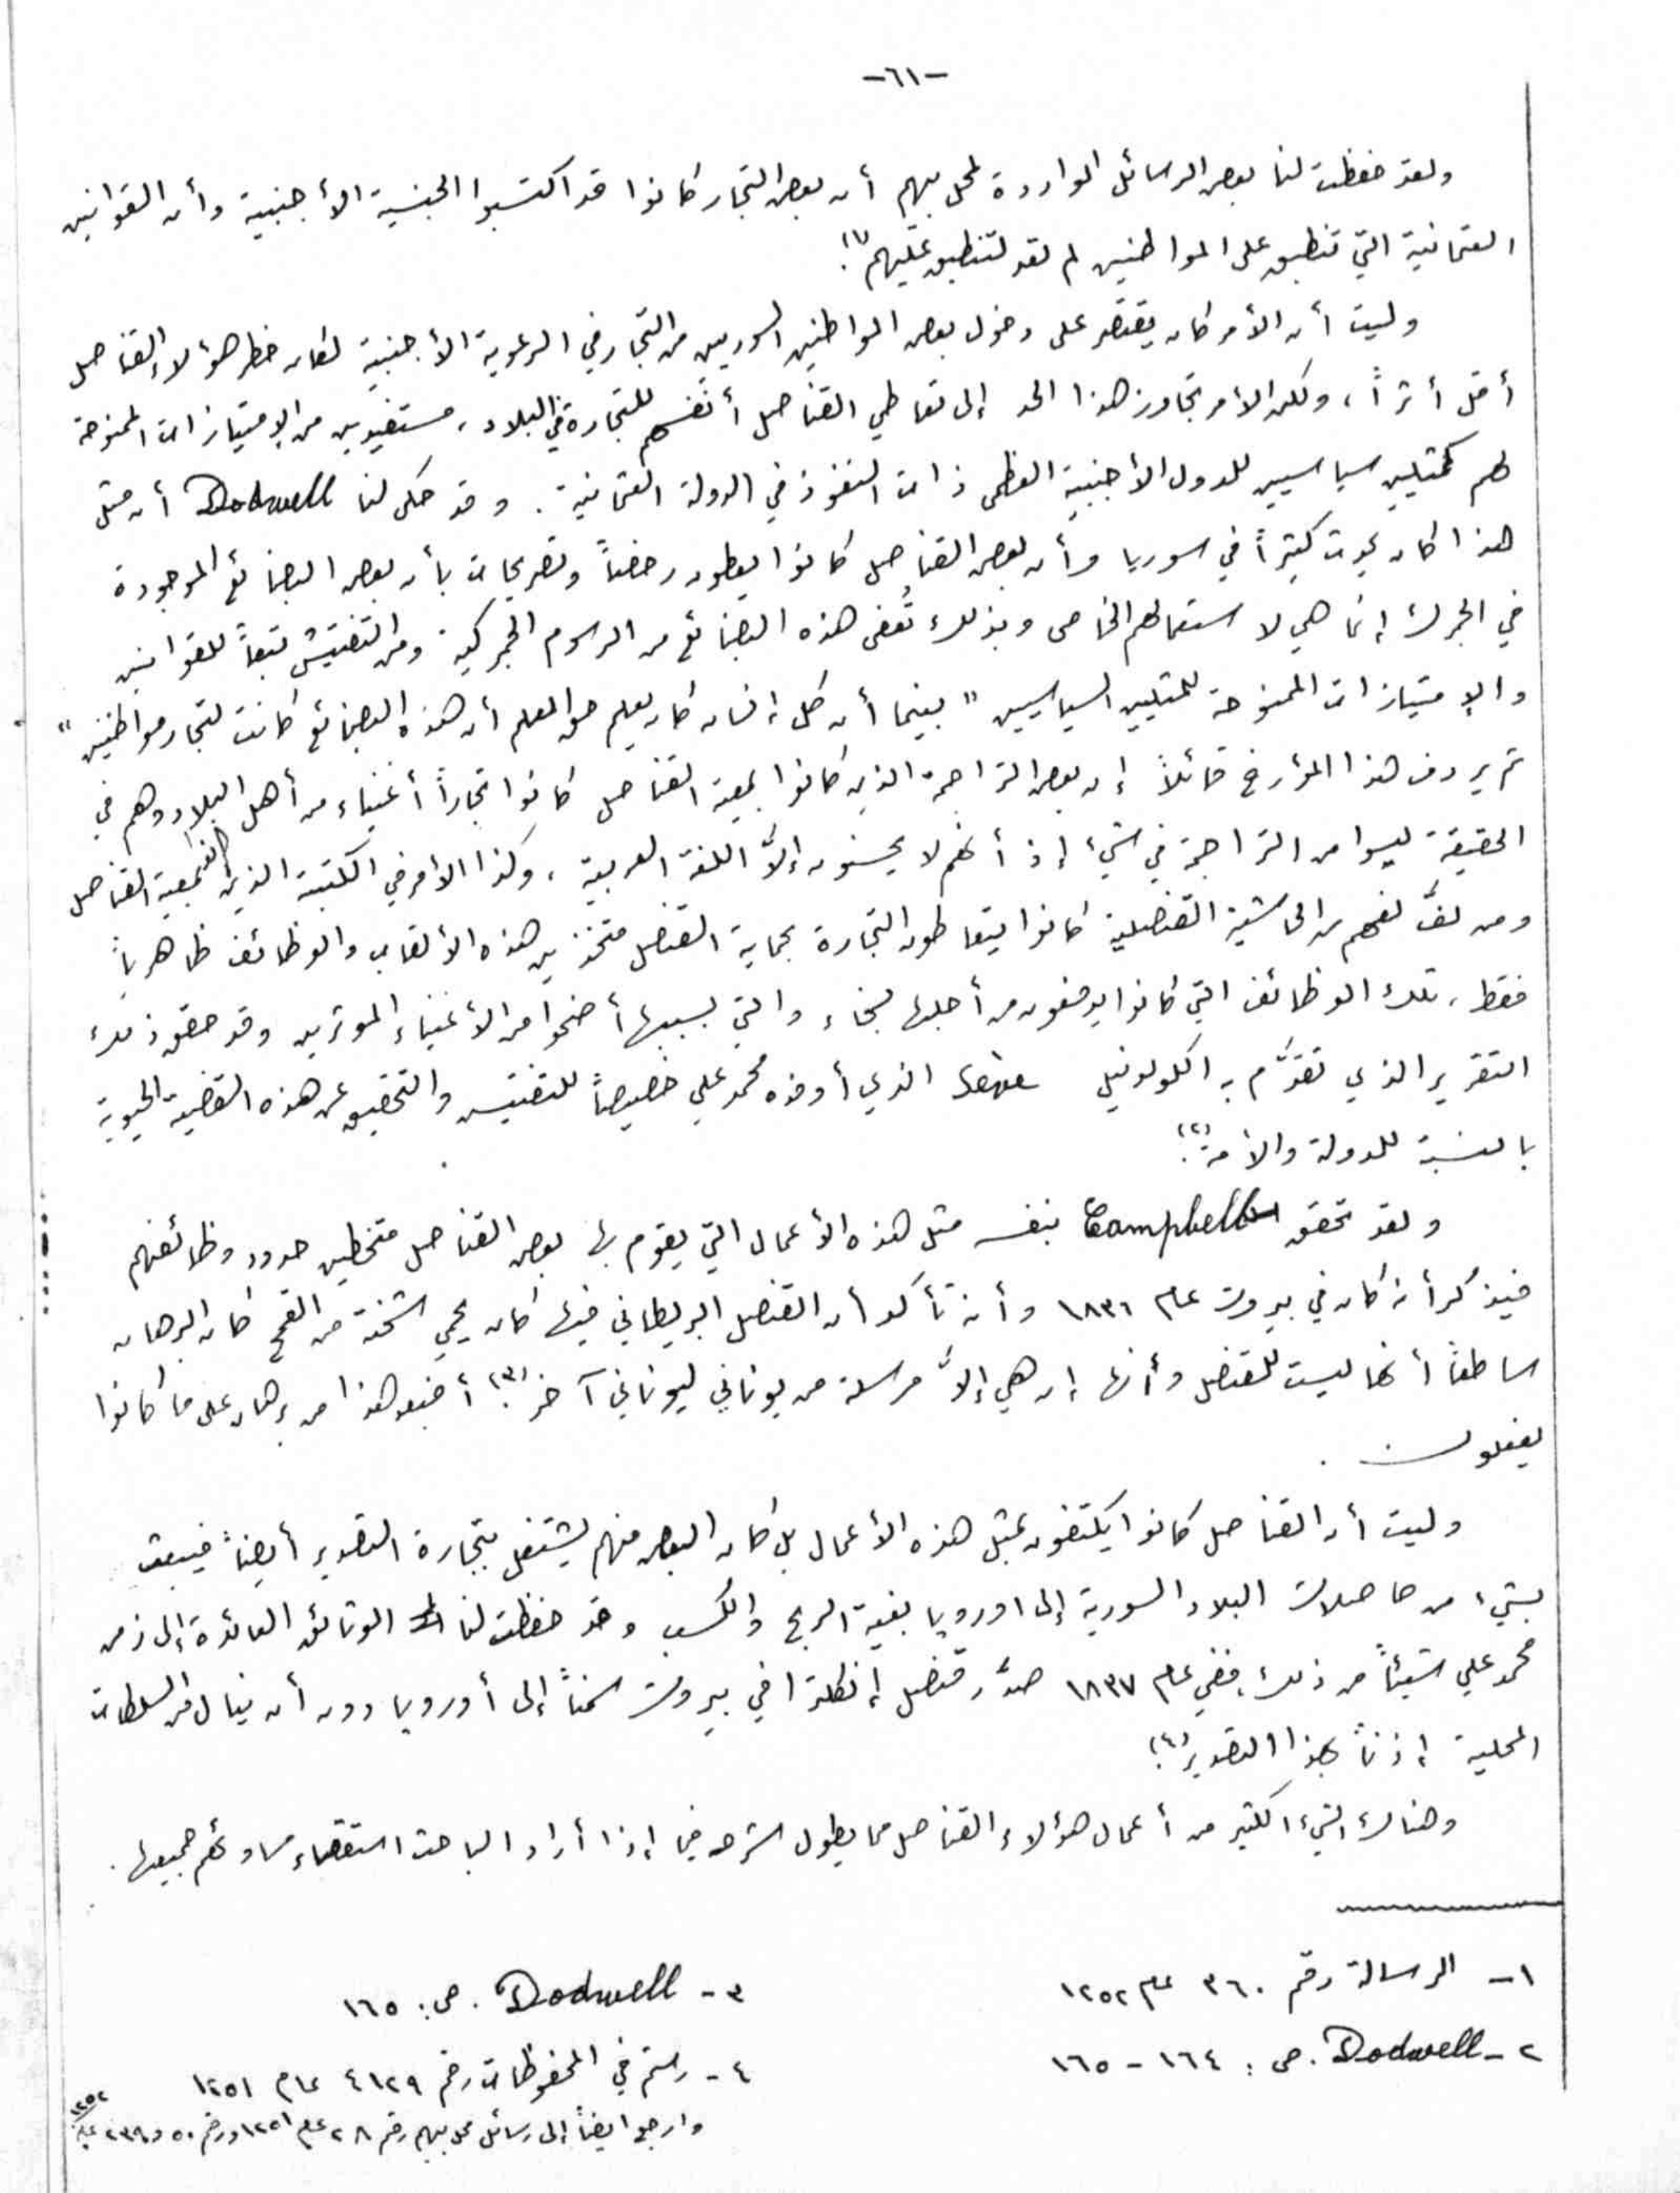 -٦١-
ولقد حفظت لنا بعض الرسائل الواردة لمحل بيهم أن بعض التجار كانوا قد اكتسبوا الجنسية الأجنبية وأن القوانين
العثمانية التي تنطبق على المواطنين لم تعد لتنطبق عليهم (١).
وليت أن الأمر كان يقتصر على دخول بعض المواطنين السوريين من التجار في الرعوية الأجنبية لكان خطر هؤلاء القناصل
أقل أثراً، ولكن الأمر تجاوز هذا الحد إلى تعاطي القناصل أنفسهم للتجارة في البلاد، مستفيدين من الإمتيازات الممنوحة
لهم كممثلين سياسيين للدول الأجنبية العظمى ذات النفوذ في الدولة العثمانية. وقد حكى لنا Dodwell أن مثل
هذا كان يحدث كثيراً في سوريا وأن بعض القناصل كانوا يعطون رخصاً وتصريحات بأن بعض البضائع الموجودة
في الجمرك إنما هي لاستعمالهم الخاص وبذلك تُعفى هذه البضائع من الرسوم الجمركية ومن التفتيش تبعاً للقوانين
والإمتيازات الممنوحة للممثلين السياسيين "بينما أن كل إنسان كان يعلم حق العلم أن هذه البضائع كانت لتجار مواطنين"
ثم يردف هذا المؤرخ قائلاً إن بعض التراجمة الذين كانوا بمعية القناصل كانوا تجاراً أغنياء من أهل البلاد وهم في
الحقيقة ليسوا من التراجمة في شيء إذ أنهم لا يحسنون إلاَّ اللغة العربية، وكذا الأمر في الكتبة الذين كانوا بمعية القناصل
ومن لفَّ لفهم من الحاشية القنصلية كانوا يتعاطون التجارة بحماية القنصل متخذين هذه الألقاب والوظائف ظاهرياً
فقط، تلك الوظائف التي كانوا يدفعون من أجلها بسخاء والتي بسببها أضحوا من الأغنياء الموثرين وقد حقق ذلك
التقرير الذي تقدَّم به الكولونيل Sève الذي أوفده محمد علي خصيصاً للتفتيش والتحقيق عن هذه القضية الحيوية
بالنسبة للدولة والأمة (٢).
ولقد تحقق Campbell بنفسه مثل هذه الأعمال التي يقوم بها بعض القناصل متخطين حدود وظائفهم
فيذكر أنه كان في بيروت عام ١٨٣٦ وأنه تأكد أن القنصل البريطاني فيها كان يحمي شحنة من القمح كان البرهان
ساطعاً أنها ليست للقنصل وأنها إن هي إلاَّ مرسلة من يوناني ليوناني آخر (٣). أفبعد هذا من برهان على ما كانوا
يفعلون.
وليت أن القناصل كانوا يكتفون بمثل هذه الأعمال بل كان البعض منهم يشتغل بتجارة التصدير أيضاً فيبعث
بشيء من حاصلات البلاد السورية إلى اوروبا بغية الربح والكسب وقد حفظت لنا الوثائق العائدة إلى زمن
محمد علي شيئاً من ذلك، ففي عام ١٨٣٧ صدَّر قنصل إنكلترا في بيروت سمناً إلى أوروبا دون أن ينال من السلطات
المحلية إذناً بهذا التصدير (٤).
وهناك الشيء الكثير من أعمال هؤلاء القناصل مما يطول شرحه فيما إذا أراد الباحث استقصاء مساوئهم جميعها.
١- الرسالة رقم ٣٦٠ عام ١٢٥٢
٢- Dodwell. ص: ١٦٤ - ١٦٥
٣- Dodwell. ص: ١٦٥
٤- رستم في المحفوظات رقم ٤١٢٩ عام ١٢٥١
وارجع ايضاً إلى رسائل محل بيهم رقم ٢٨ عام ١٢٥١ ورقم ٥٠ و ٢٣٩ عام ١٢٥٢